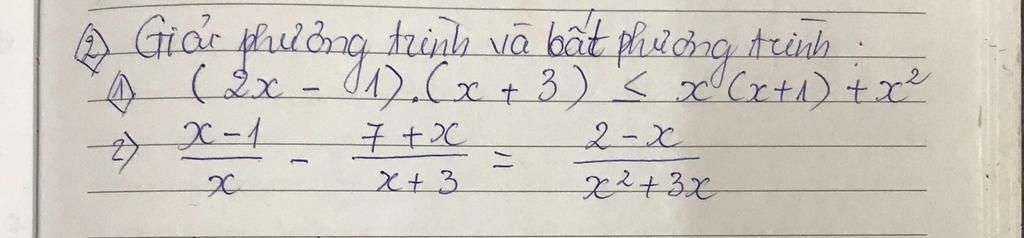 2) Giải phương trình và bất phương trình :
1) (2x - 1).(x + 3) ≤ x(x+1) + x²
2) \frac{x-1}{x} - \frac{7+x}{x+3} = \frac{2-x}{x²+3x}